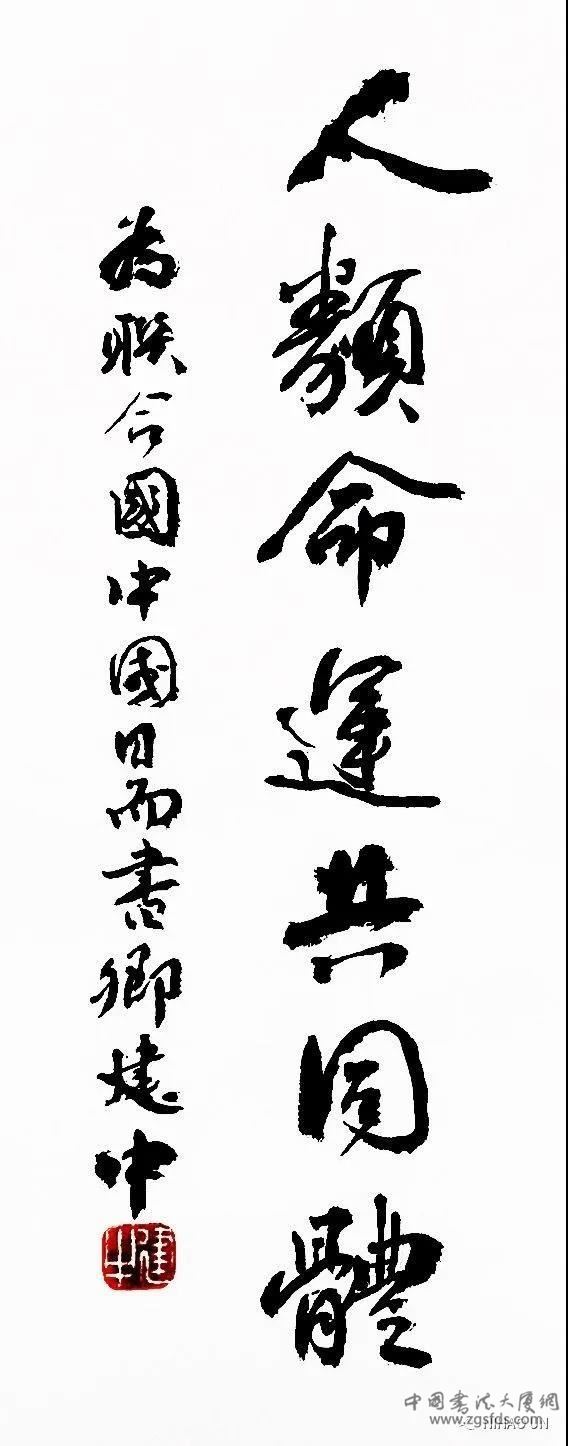 人類命運共同體
為聯合國中國日而書卿建中
中国书法大厦網
www.zgsfds.com
NIHAO UN